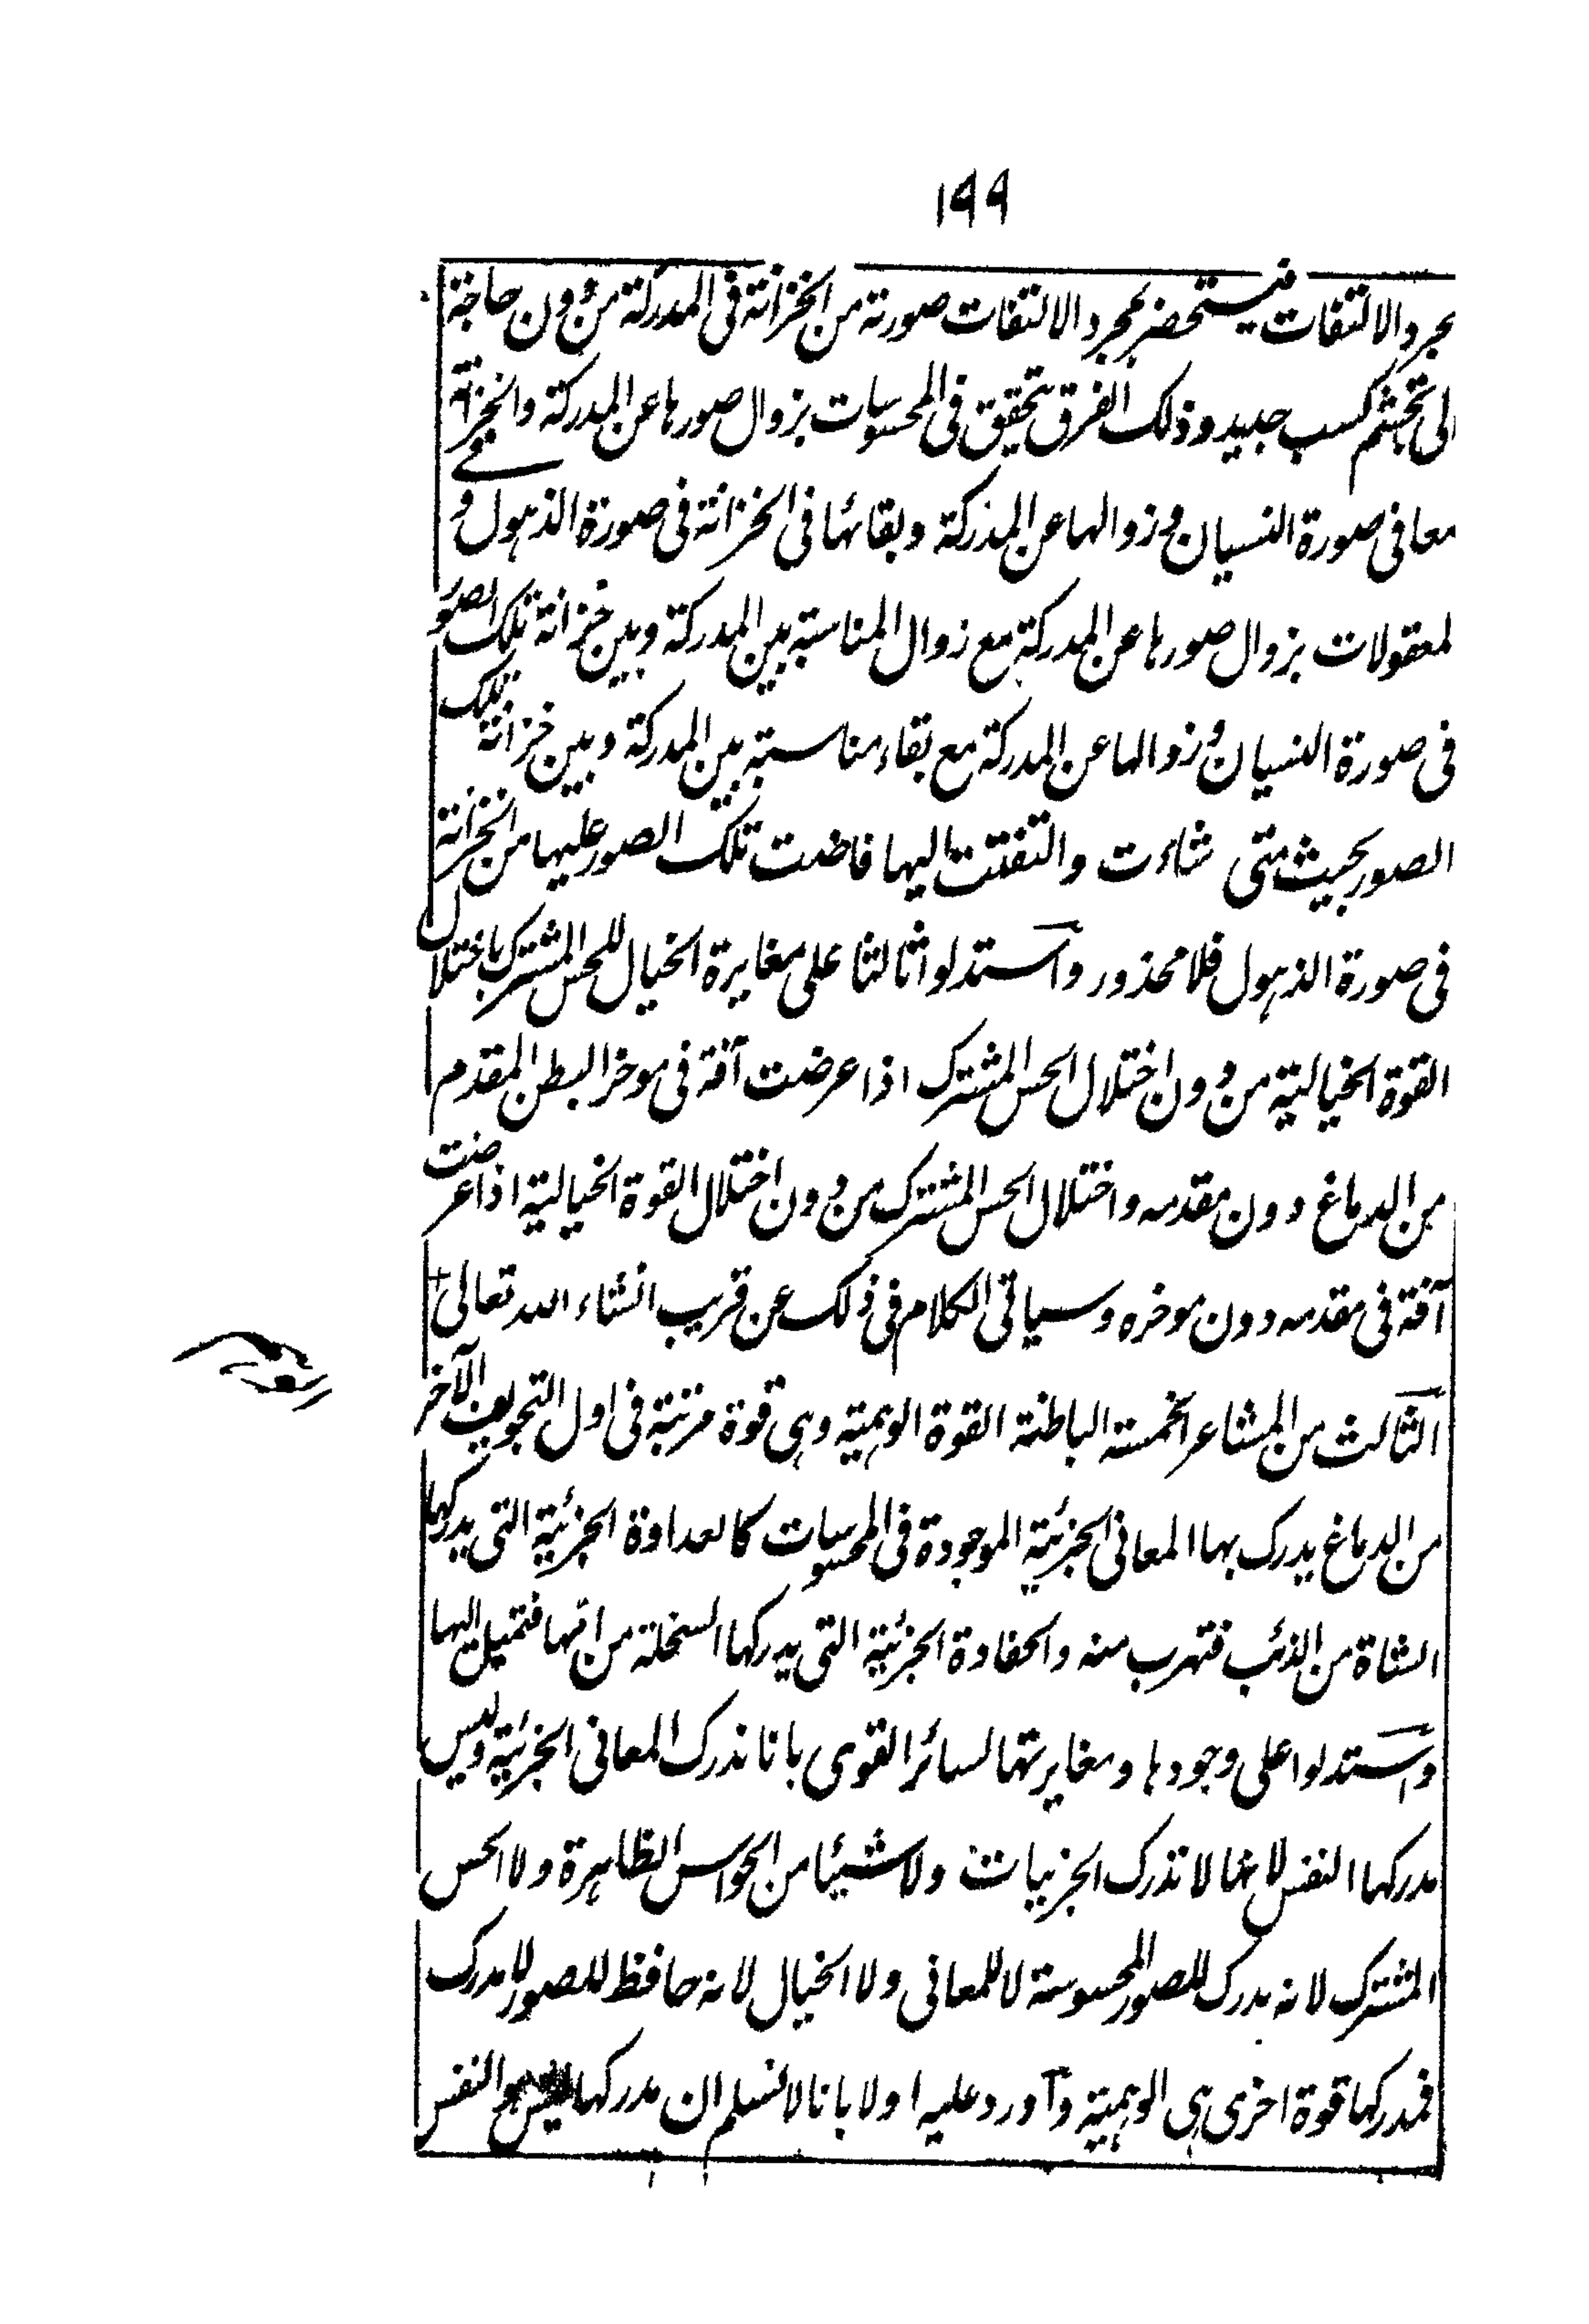 ۱۹۹
بمجرد الالتفات فيستحضر بمجرد الالتفات صورته من الخزانة فى المدركة من دون حاجة
الى تجشم كسب جديد وذلك الفرق يتحقق فى المحسوسات بزوال صورها عن المدركة والخزانة
معا فى صورة النسيان وزوالها عن المدركة وبقائها فى الخزانة فى صورة الذهول و فى
المعقولات بزوال صورها عن المدركة مع زوال المناسبة بين المدركة وبين خزانة تلك الصور
فى صورة النسيان وزوالها عن المدركة مع بقاء مناسبته بين المدركة وبين خزانة تلك
الصور بحيث متى شاءت والتفتت اليها فاضت تلك الصور عليها من الخزانة
فى صورة الذهول فلا محذور واستدلوا ثالثا على مغايرة الخيال للحس المشترك باختلال
القوة الخيالية من دون اختلال الحس المشترك اذا عرضت آفة فى موخر البطن المقدم
من الدماغ دون مقدمه واختلال الحس المشترك من دون اختلال القوة الخيالية اذا عرضت
آفة فى مقدمه دون موخره وسياتى الكلام فى ذلك عن قريب انشاء الله تعالى
الثالث من المشاعر الخمسة الباطنة القوة الوهمية وهى قوة مرتبة فى اول التجويف الآخر
من الدماغ يدرك بها المعانى الجزئية الموجودة فى المحسوسات كالعداوة الجزئية التى يدركها
الشاة من الذئب فتهرب منه والحفادة الجزئية التى يدركها السخلة من امها فتميل اليها
واستدلوا على وجودها ومغايرتها لسائر القوى بانا ندرك المعانى الجزئية وليس
مدركها النفس لانها لا تدرك الجزئيات ولا شيئا من الحواس الظاهرة ولا الحس
المشترك لانه مدرك للصور المحسوسة لا للمعانى ولا الخيال لانه حافظ للصور لا مدرك
فمدركها قوة اخرى هى الوهمية وآورد عليه اولا بانا لا نسلم ان مدركها ليس هو النفس